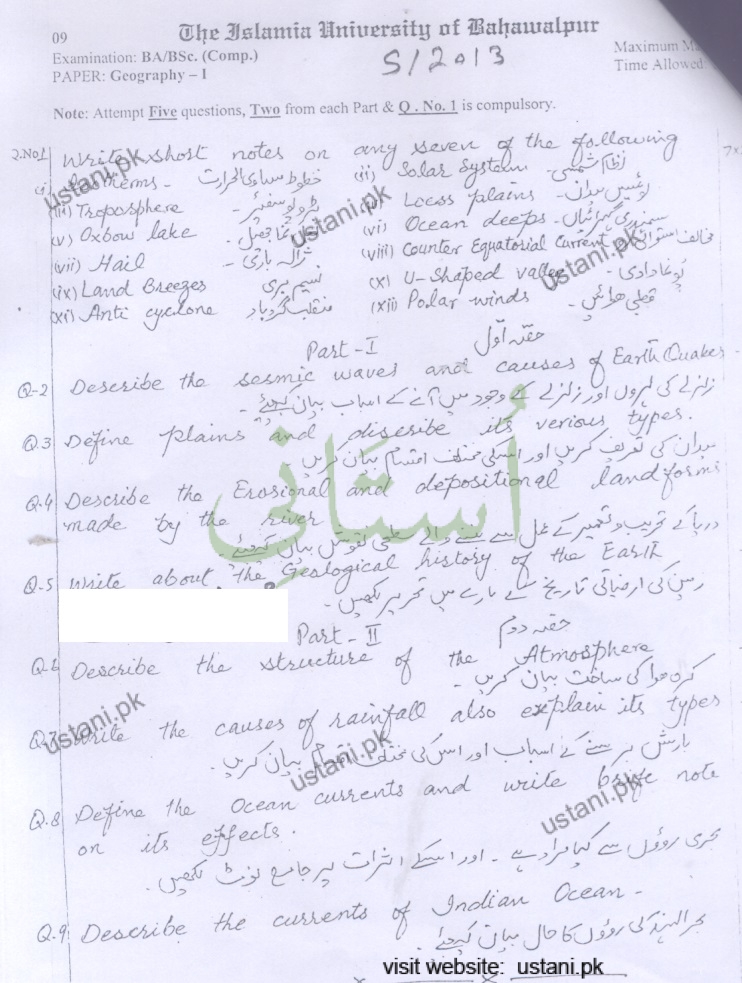 09 The Islamia University of Bahawalpur
Examination: BA/BSc. (Comp.) S/2013 Maximum M
PAPER: Geography – I Time Allowed
Note: Attempt Five questions, Two from each Part & Q. No. 1 is compulsory.
Q.No1 Write short notes on any seven of the following 7x
(i) Isotherms - خطوط مساوی الحرارت (ii) Solar System - نظام شمسی
(iii) Troposphere - ٹروپوسفیئر Loess plains - لوئیس میدان
(v) Oxbow lake - (vi) Ocean deeps - سمندری گہرائیاں
(vii) Hail ژالہ باری - (viii) Counter Equatorial Current مخالف استوائی
(ix) Land Breezes نسیم بری (x) U-Shaped valley یو نما وادی -
(xi) Anti cyclone منقلب گردباد (xii) Polar winds قطبی ہوائیں -
Part - I حصہ اوّل
Q-2 Describe the sesmic waves and causes of Earth Quakes -
زلزلے کی لہروں اور زلزلے کے وجود میں آنے کے اسباب بیان کیجئے -
Q.3 Define plains and discribe its verious types.
میدان کی تعریف کریں اور اسکی مختلف اقسام بیان کریں
Q.4 Describe the Erosional and depositional landforms
made by the river
دریا کے تخریب و تعمیر کے عمل سے بننے والے سطحی نقوش بیان کیجئے -
Q-5 Write about the Geological history of the Earth
زمین کی ارضیاتی تاریخ کے بارے میں تحریر لکھیں -
Part - II حصہ دوم
Q.6 Describe the structure of the Atmosphere
کرہ ہوا کی ساخت بیان کریں -
Q.7 Write the causes of rainfall also explain its types
بارش برسنے کے اسباب اور اس کی مختلف اقسام بیان کریں -
Q.8 Define the Ocean currents and write brife note
on its effects.
بحری روؤں سے کیا مراد ہے - اور اسکے اثرات پر جامع نوٹ لکھیں -
Q.9 Describe the currents of Indian Ocean -
بحر الہند کی روؤں کا حال بیان کیجئے -
اُستانی
ustani.pk
ustani.pk
ustani.pk
ustani.pk
ustani.pk
ustani.pk
visit website: ustani.pk